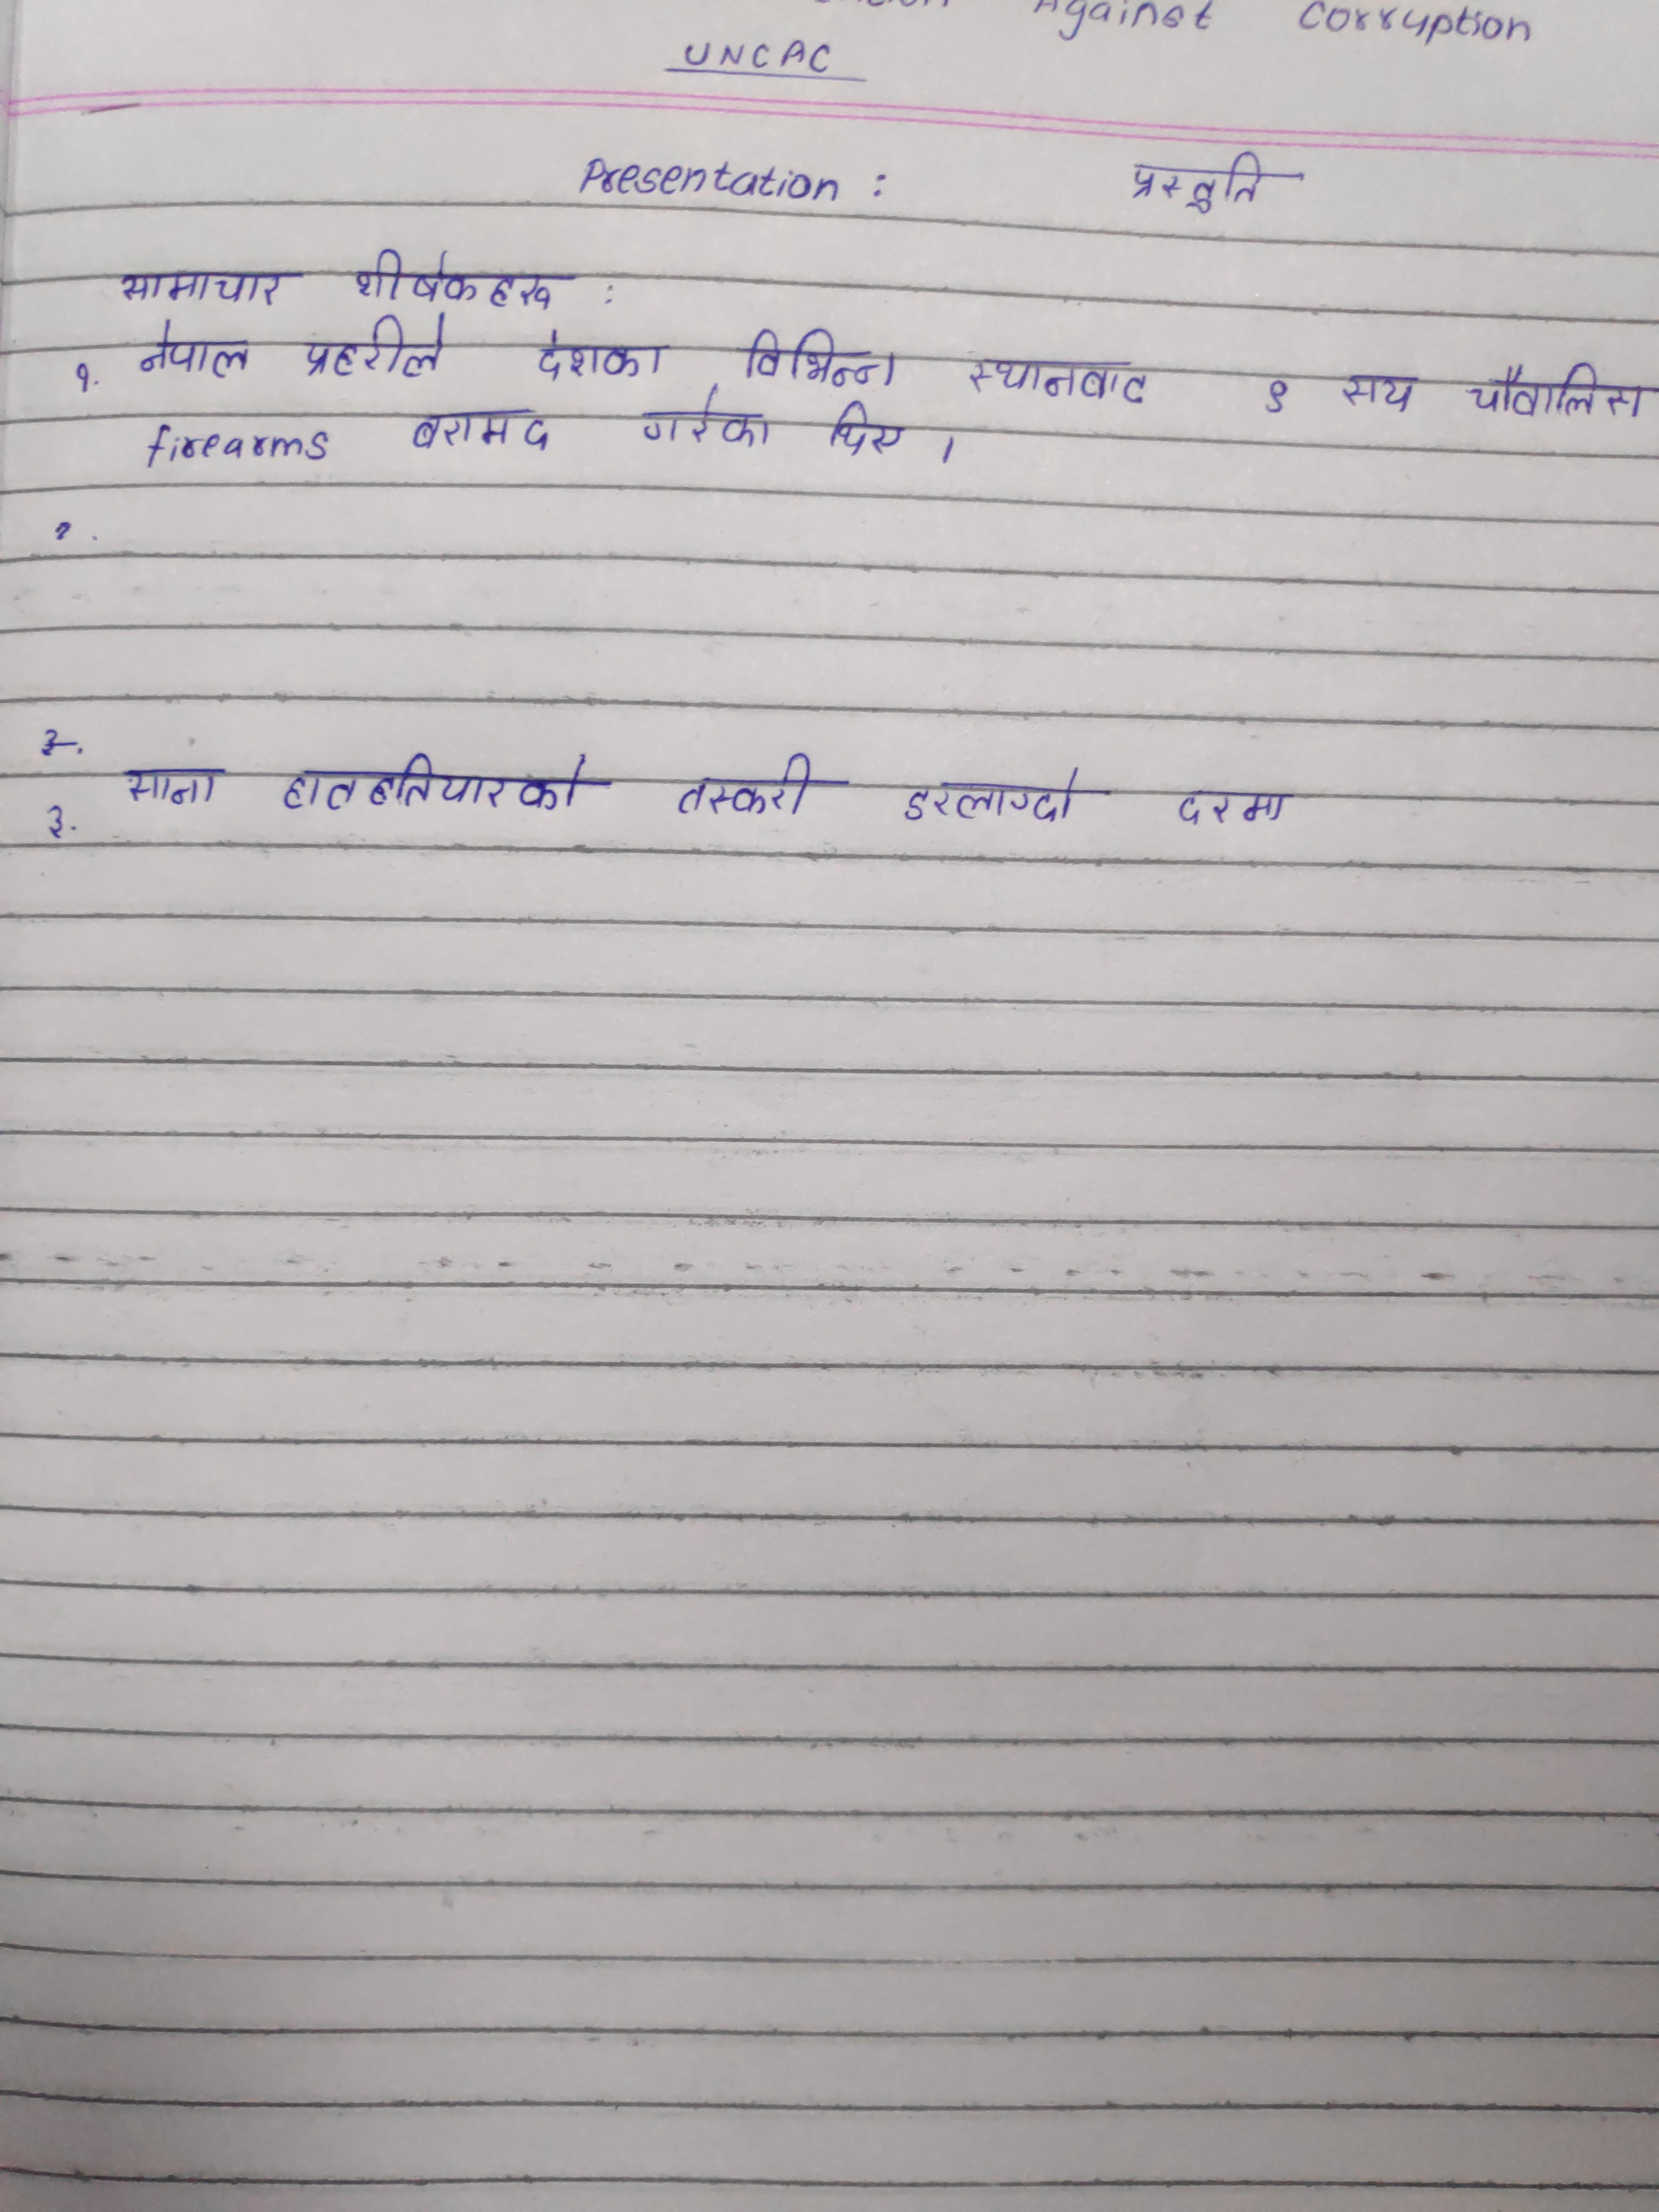 Against Corruption
UNCAC
Presentation : प्रस्तुति
सामाचार शीर्षकहरु :
१. नेपाल प्रहरीले देशका विभिन्न स्थानबाट ९ सय चौवालिस
firearms बरामद गरेका थिए ।
२.
३.
साना हातहतियारको तस्करी डरलाग्दो दरमा
३.